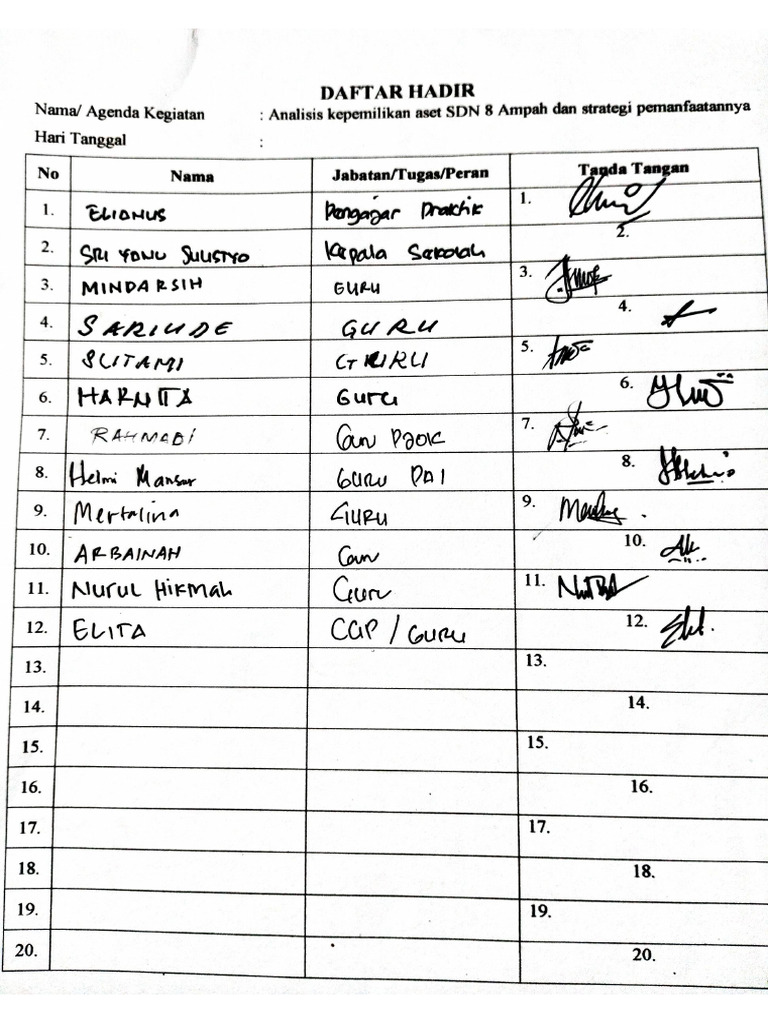 DAFTAR HADIR
Nama/ Agenda Kegiatan : Analisis kepemilikan aset SDN 8 Ampah dan strategi pemanfaatannya
Hari Tanggal :
No Nama Jabatan/Tugas/Peran Tanda Tangan
1. ELIONUS Pengajar Praktik 1.
2. SRI YONO SULISTYO Kepala Sekolah 2.
3. MINDARSIH GURU 3.
4. SARIUDE GURU 4.
5. SUTAMI GURU 5.
6. HARNITA Guru 6.
7. RAHMADI 7.
8. Helmi Mansur GURU PAI 8.
9. Mertalina GURU 9.
10. ARBAINAH Guru 10.
11. NURUL HIKMAH Guru 11.
12. ELITA CGP / GURU 12.
13. 13.
14. 14.
15. 15.
16. 16.
17. 17.
18. 18.
19. 19.
20. 20.